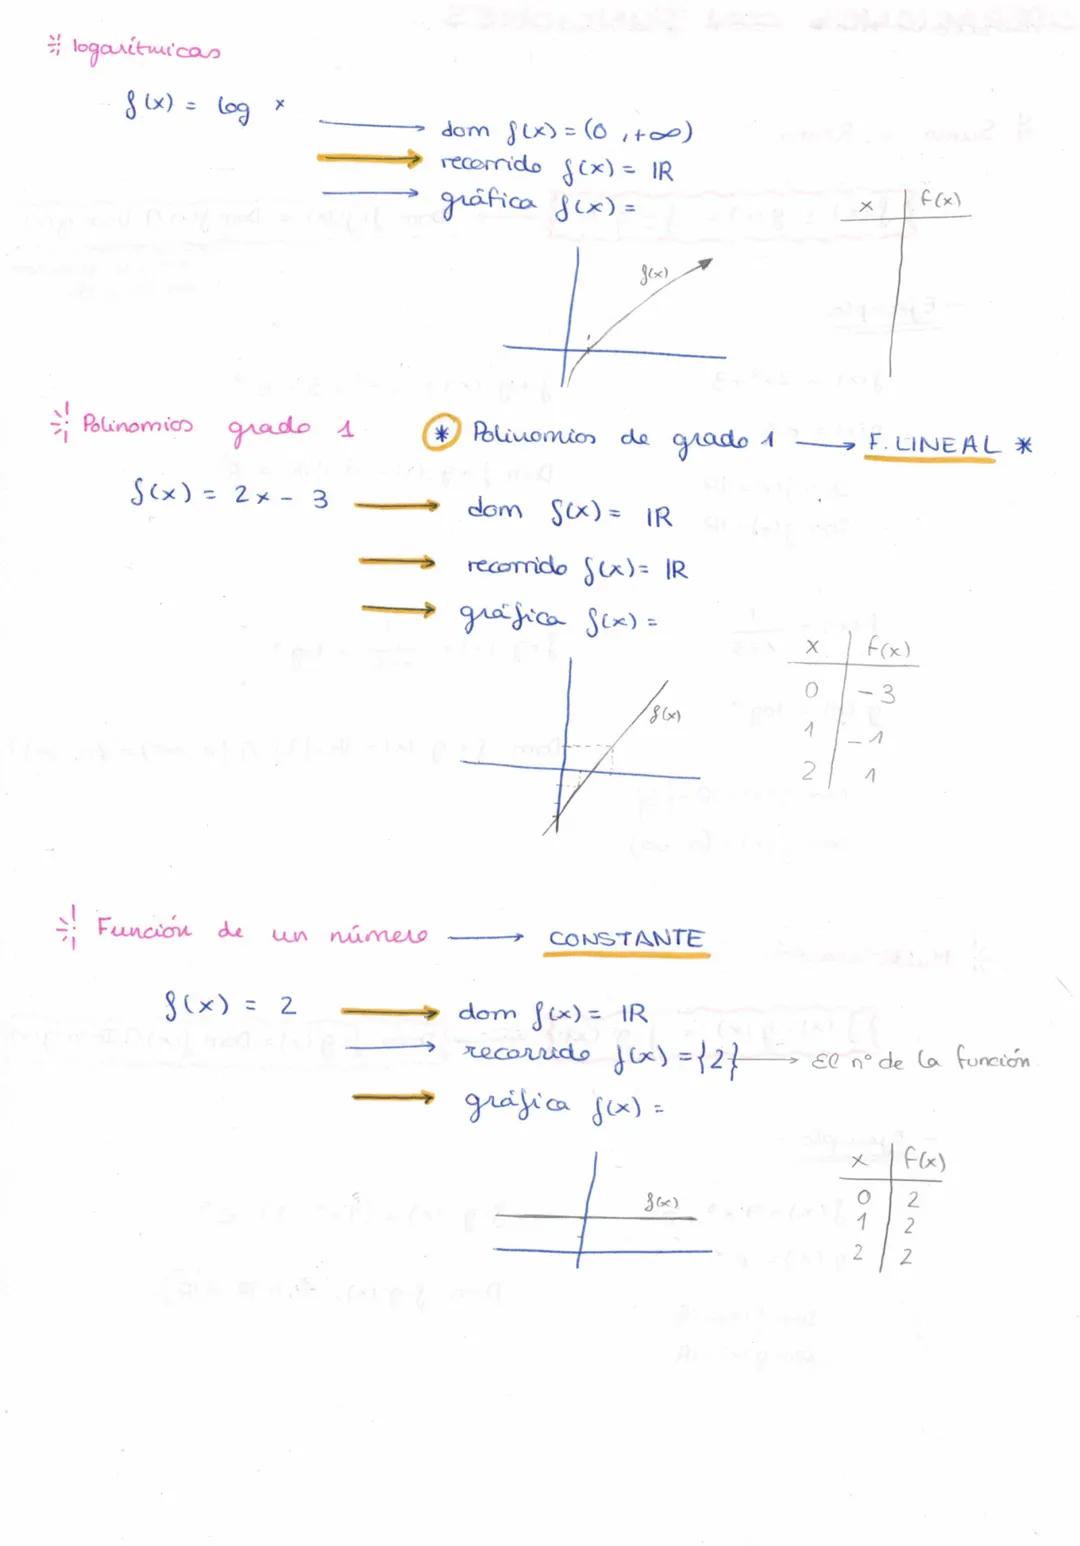 logarítmicas
f(x) = log x
dom f(x) = (0, +∞)
recorrido f(x) = ℝ
gráfica f(x) =
x | f(x)
f(x)
1
Polinomios grado 1
* Polinomios de grado 1 → F. LINEAL *
f(x) = 2x - 3
dom f(x) = ℝ
recorrido f(x) = ℝ
gráfica f(x) =
x | f(x)
0 | -3
1 | -1
2 | 1
f(x)
Función de un número → CONSTANTE
f(x) = 2
dom f(x) = ℝ
recorrido f(x) = {2} → El nº de la función
gráfica f(x) =
x | f(x)
0 | 2
1 | 2
2 | 2
f(x)